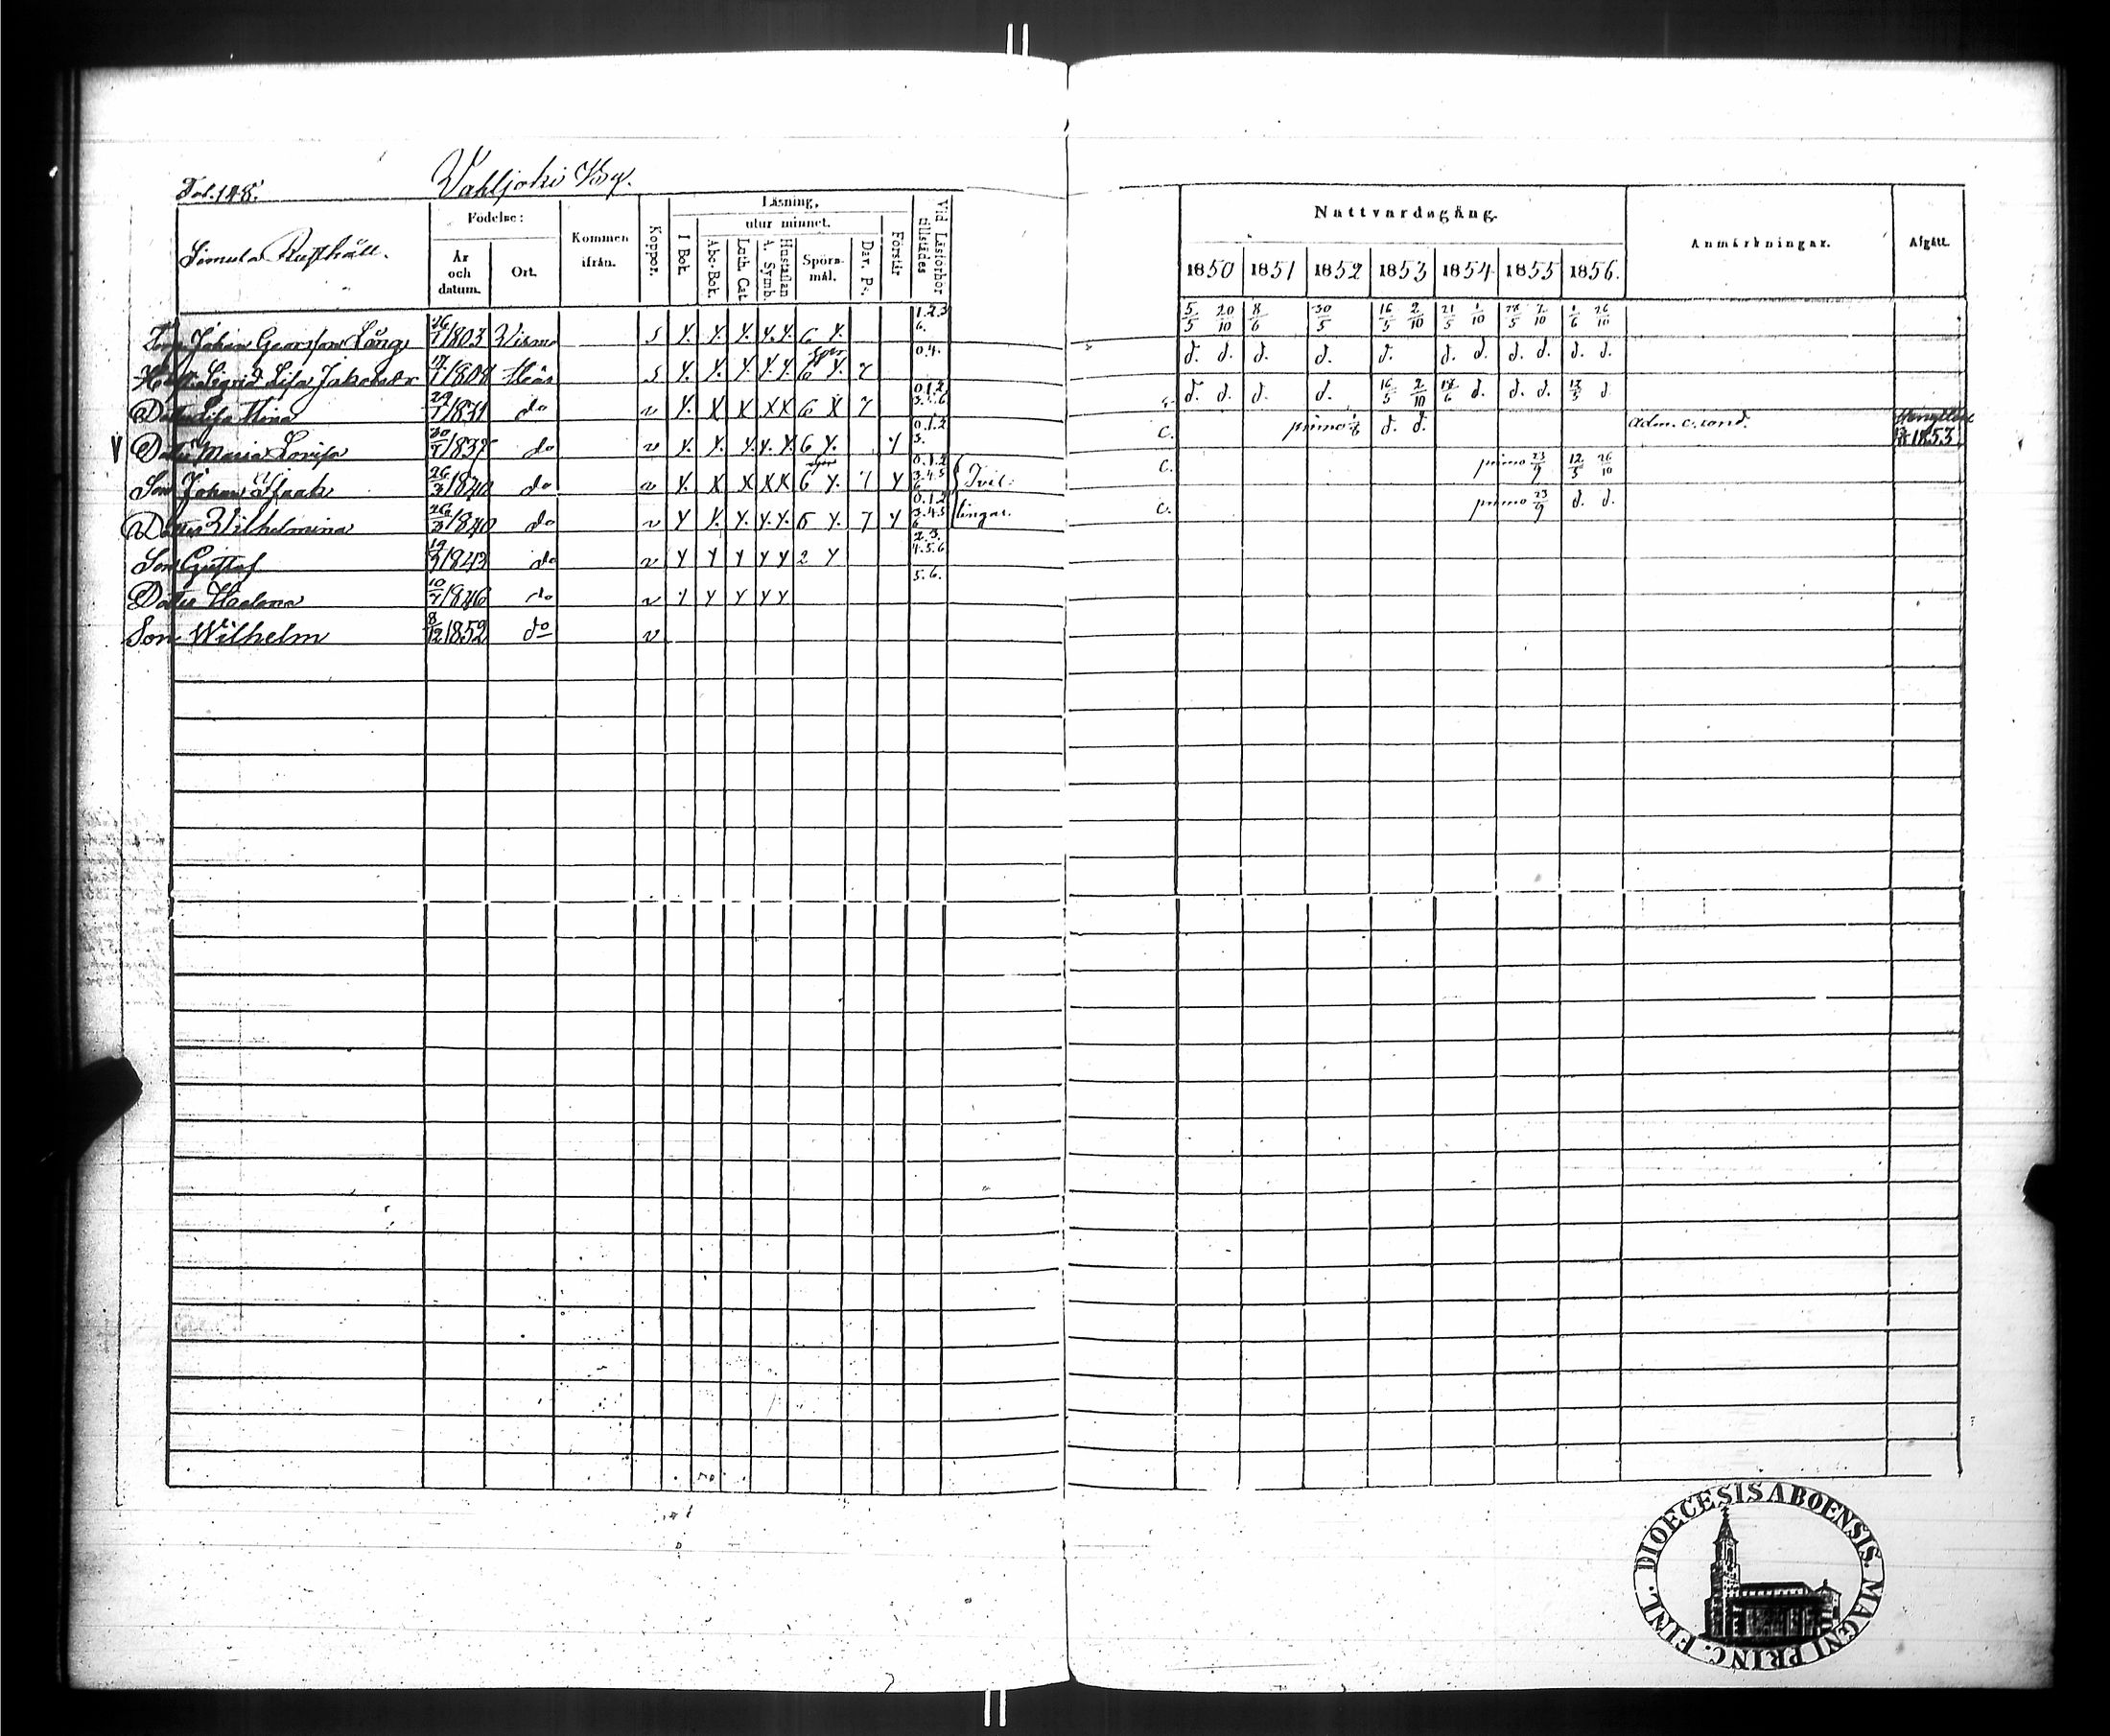 Fol. 148.
Vahljoki By.
Simula Rusthåll.
Födelse:
År och datum.
Ort.
Kommen ifrån.
Koppor.
Läsning,
utur minnet.
I Bok.
Abc-Bok.
Luth. Cat.
A. Symb. Hustaflan
Spörsmål.
Dav. Ps.
Förstår.
Vid Läsförhör tillstädes
Nattvardsgång.
1850 1851 1852 1853 1854 1855 1856.
Anmärkningar.
Afgått.
Johan Georgsson Lång 26/7 1803 s y. y. y. y. y. 6 y. 1.2.3 6. 5/5 20/10 8/6 30/5 16/5 2/10 21/5 1/10 7/10 1/6 26/10
Sigrid Lisa Jakobsdr s y. y. y. y. y. 6 y. 7 0.4. d. d. d. d. d. d. d. d. d. d. d.
Dotter Lisa Stina 29/7 1831 do v y. x x x x 6 x 7 0.1.2 d. d. d. d. 16/5 2/10 d. d. d. d.
V Dotter Maria Lovisa 30/7 1837 do v y. y. y. y. y. 6 y. y 0.1.2 3. c. primo d. d. adm. c. cond. 1853.
Son Johan Isaak 26/3 1840 do v y. x x x x 6 y. 7 y 0.1.2 3.4.5 6 Tvil- c. primo 23/9 12/5 26/10
Dotter Wilhelmina 26/3 1840 do v y y. y. y. y. 6 y. 7 y 0.1.2 3.4.5 6 lingar. c. primo 23/9 d. d.
Son Gustaf 1843 do v y y y y y 2 y 2.3. 4.5.6
Dotter Helena 10/7 1846 do v y y y y y 5.6.
Son Wilhelm 8/12 1852 do v
DIOECESIS ABOENSIS. MAGNI PRINC. FINL.